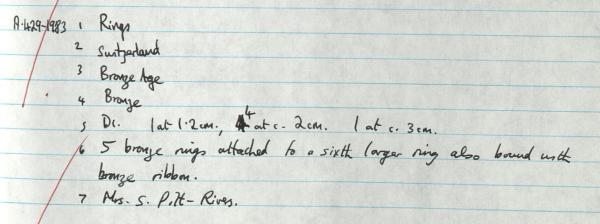 A.429-1983 1 Rings
2 Switzerland
3 Bronze Age
4 Bronze
5 Di. 1 at 1.2cm., 4 at c. 2cm. 1 at c. 3cm.
6 5 bronze rings attached to a sixth larger ring also bound with
bronze ribbon.
7 Mrs. S. Pitt-Rivers.